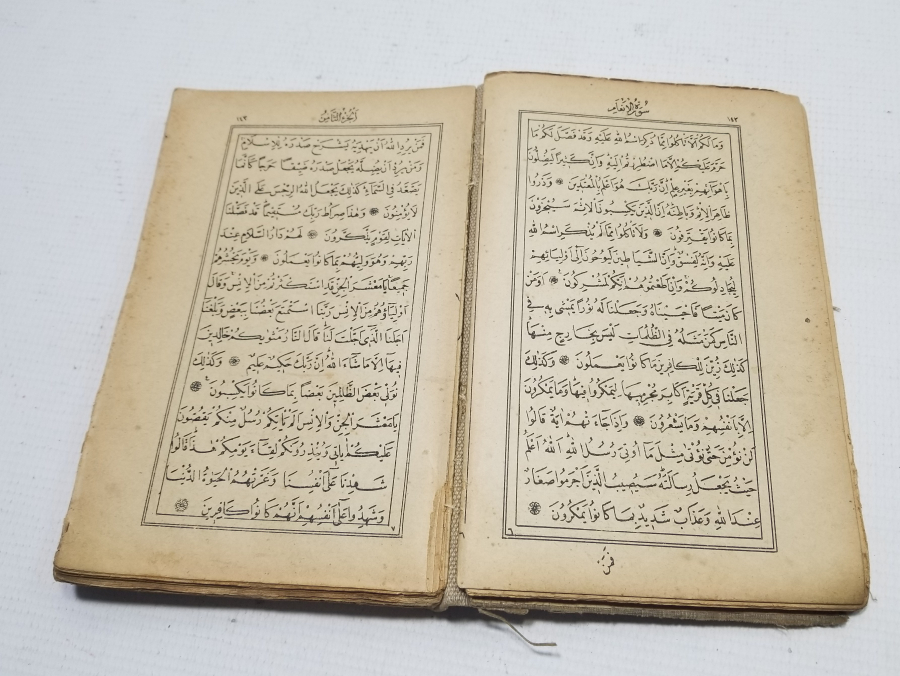 سورة الانعام
١٤٢
وَمَا لَكُمْ اَلَّا تَأْكُلُوا مِمَّا ذُكِرَ اسْمُ اللّٰهِ عَلَيْهِ وَقَدْ فَصَّلَ لَكُمْ مَا
حَرَّمَ عَلَيْكُمْ اِلَّا مَا اضْطُرِرْتُمْ اِلَيْهِ وَاِنَّ كَثِيرًا لَيُضِلُّونَ
بِاَهْوَائِهِمْ بِغَيْرِ عِلْمٍ اِنَّ رَبَّكَ هُوَ اَعْلَمُ بِالْمُعْتَدِينَ ۞ وَذَرُوا
ظَاهِرَ الْاِثْمِ وَبَاطِنَهُ اِنَّ الَّذِينَ يَكْسِبُونَ الْاِثْمَ سَيُجْزَوْنَ
بِمَا كَانُوا يَقْتَرِفُونَ ۞ وَلَا تَأْكُلُوا مِمَّا لَمْ يُذْكَرِ اسْمُ اللّٰهِ
عَلَيْهِ وَاِنَّهُ لَفِسْقٌ وَاِنَّ الشَّيَاطِينَ لَيُوحُونَ اِلٰى اَوْلِيَائِهِمْ
لِيُجَادِلُوكُمْ وَاِنْ اَطَعْتُمُوهُمْ اِنَّكُمْ لَمُشْرِكُونَ ۞ اَوَمَنْ
كَانَ مَيْتًا فَاَحْيَيْنَاهُ وَجَعَلْنَا لَهُ نُورًا يَمْشِي بِهِ فِي
النَّاسِ كَمَنْ مَثَلُهُ فِي الظُّلُمَاتِ لَيْسَ بِخَارِجٍ مِنْهَا
كَذٰلِكَ زُيِّنَ لِلْكَافِرِينَ مَا كَانُوا يَعْمَلُونَ ۞ وَكَذٰلِكَ
جَعَلْنَا فِي كُلِّ قَرْيَةٍ اَكَابِرَ مُجْرِمِيهَا لِيَمْكُرُوا فِيهَا وَمَا يَمْكُرُونَ
اِلَّا بِاَنْفُسِهِمْ وَمَا يَشْعُرُونَ ۞ وَاِذَا جَاءَتْهُمْ اٰيَةٌ قَالُوا
لَنْ نُؤْمِنَ حَتّٰى نُؤْتٰى مِثْلَ مَا اُوتِيَ رُسُلُ اللّٰهِ اَللّٰهُ اَعْلَمُ
حَيْثُ يَجْعَلُ رِسَالَتَهُ سَيُصِيبُ الَّذِينَ اَجْرَمُوا صَغَارٌ
عِنْدَ اللّٰهِ وَعَذَابٌ شَدِيدٌ بِمَا كَانُوا يَمْكُرُونَ ۞
فَمَنْ
الجزء الثامن
١٤٣
فَمَنْ يُرِدِ اللّٰهُ اَنْ يَهْدِيَهُ يَشْرَحْ صَدْرَهُ لِلْاِسْلَامِ
وَمَنْ يُرِدْ اَنْ يُضِلَّهُ يَجْعَلْ صَدْرَهُ ضَيِّقًا حَرَجًا كَاَنَّمَا
يَصَّعَّدُ فِي السَّمَاءِ كَذٰلِكَ يَجْعَلُ اللّٰهُ الرِّجْسَ عَلَى الَّذِينَ
لَا يُؤْمِنُونَ ۞ وَهٰذَا صِرَاطُ رَبِّكَ مُسْتَقِيمًا قَدْ فَصَّلْنَا
الْاٰيَاتِ لِقَوْمٍ يَذَّكَّرُونَ ۞ لَهُمْ دَارُ السَّلَامِ عِنْدَ
رَبِّهِمْ وَهُوَ وَلِيُّهُمْ بِمَا كَانُوا يَعْمَلُونَ ۞ وَيَوْمَ يَحْشُرُهُمْ
جَمِيعًا يَا مَعْشَرَ الْجِنِّ قَدِ اسْتَكْثَرْتُمْ مِنَ الْاِنْسِ وَقَالَ
اَوْلِيَاؤُهُمْ مِنَ الْاِنْسِ رَبَّنَا اسْتَمْتَعَ بَعْضُنَا بِبَعْضٍ وَبَلَغْنَا
اَجَلَنَا الَّذِي اَجَّلْتَ لَنَا قَالَ النَّارُ مَثْوٰيكُمْ خَالِدِينَ
فِيهَا اِلَّا مَا شَاءَ اللّٰهُ اِنَّ رَبَّكَ حَكِيمٌ عَلِيمٌ ۞ وَكَذٰلِكَ
نُوَلِّي بَعْضَ الظَّالِمِينَ بَعْضًا بِمَا كَانُوا يَكْسِبُونَ ۞
يَا مَعْشَرَ الْجِنِّ وَالْاِنْسِ اَلَمْ يَأْتِكُمْ رُسُلٌ مِنْكُمْ يَقُصُّونَ
عَلَيْكُمْ اٰيَاتِي وَيُنْذِرُونَكُمْ لِقَاءَ يَوْمِكُمْ هٰذَا قَالُوا
شَهِدْنَا عَلٰى اَنْفُسِنَا وَغَرَّتْهُمُ الْحَيٰوةُ الدُّنْيَا
وَشَهِدُوا عَلٰى اَنْفُسِهِمْ اَنَّهُمْ كَانُوا كَافِرِينَ ۞